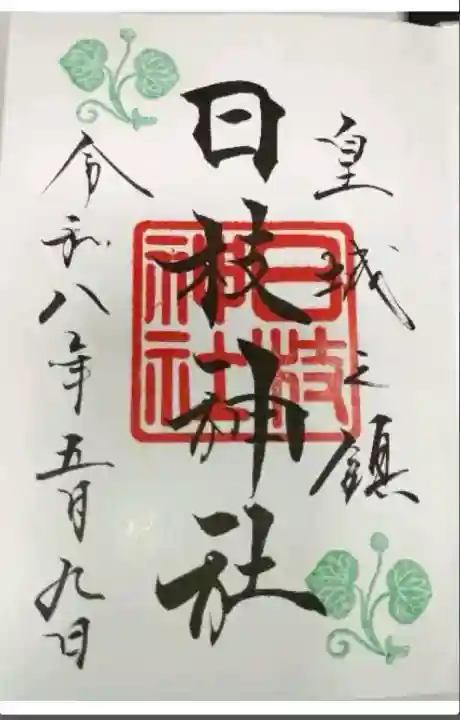 皇城之鎮
日枝神社
日枝
神社
令和八年五月九日